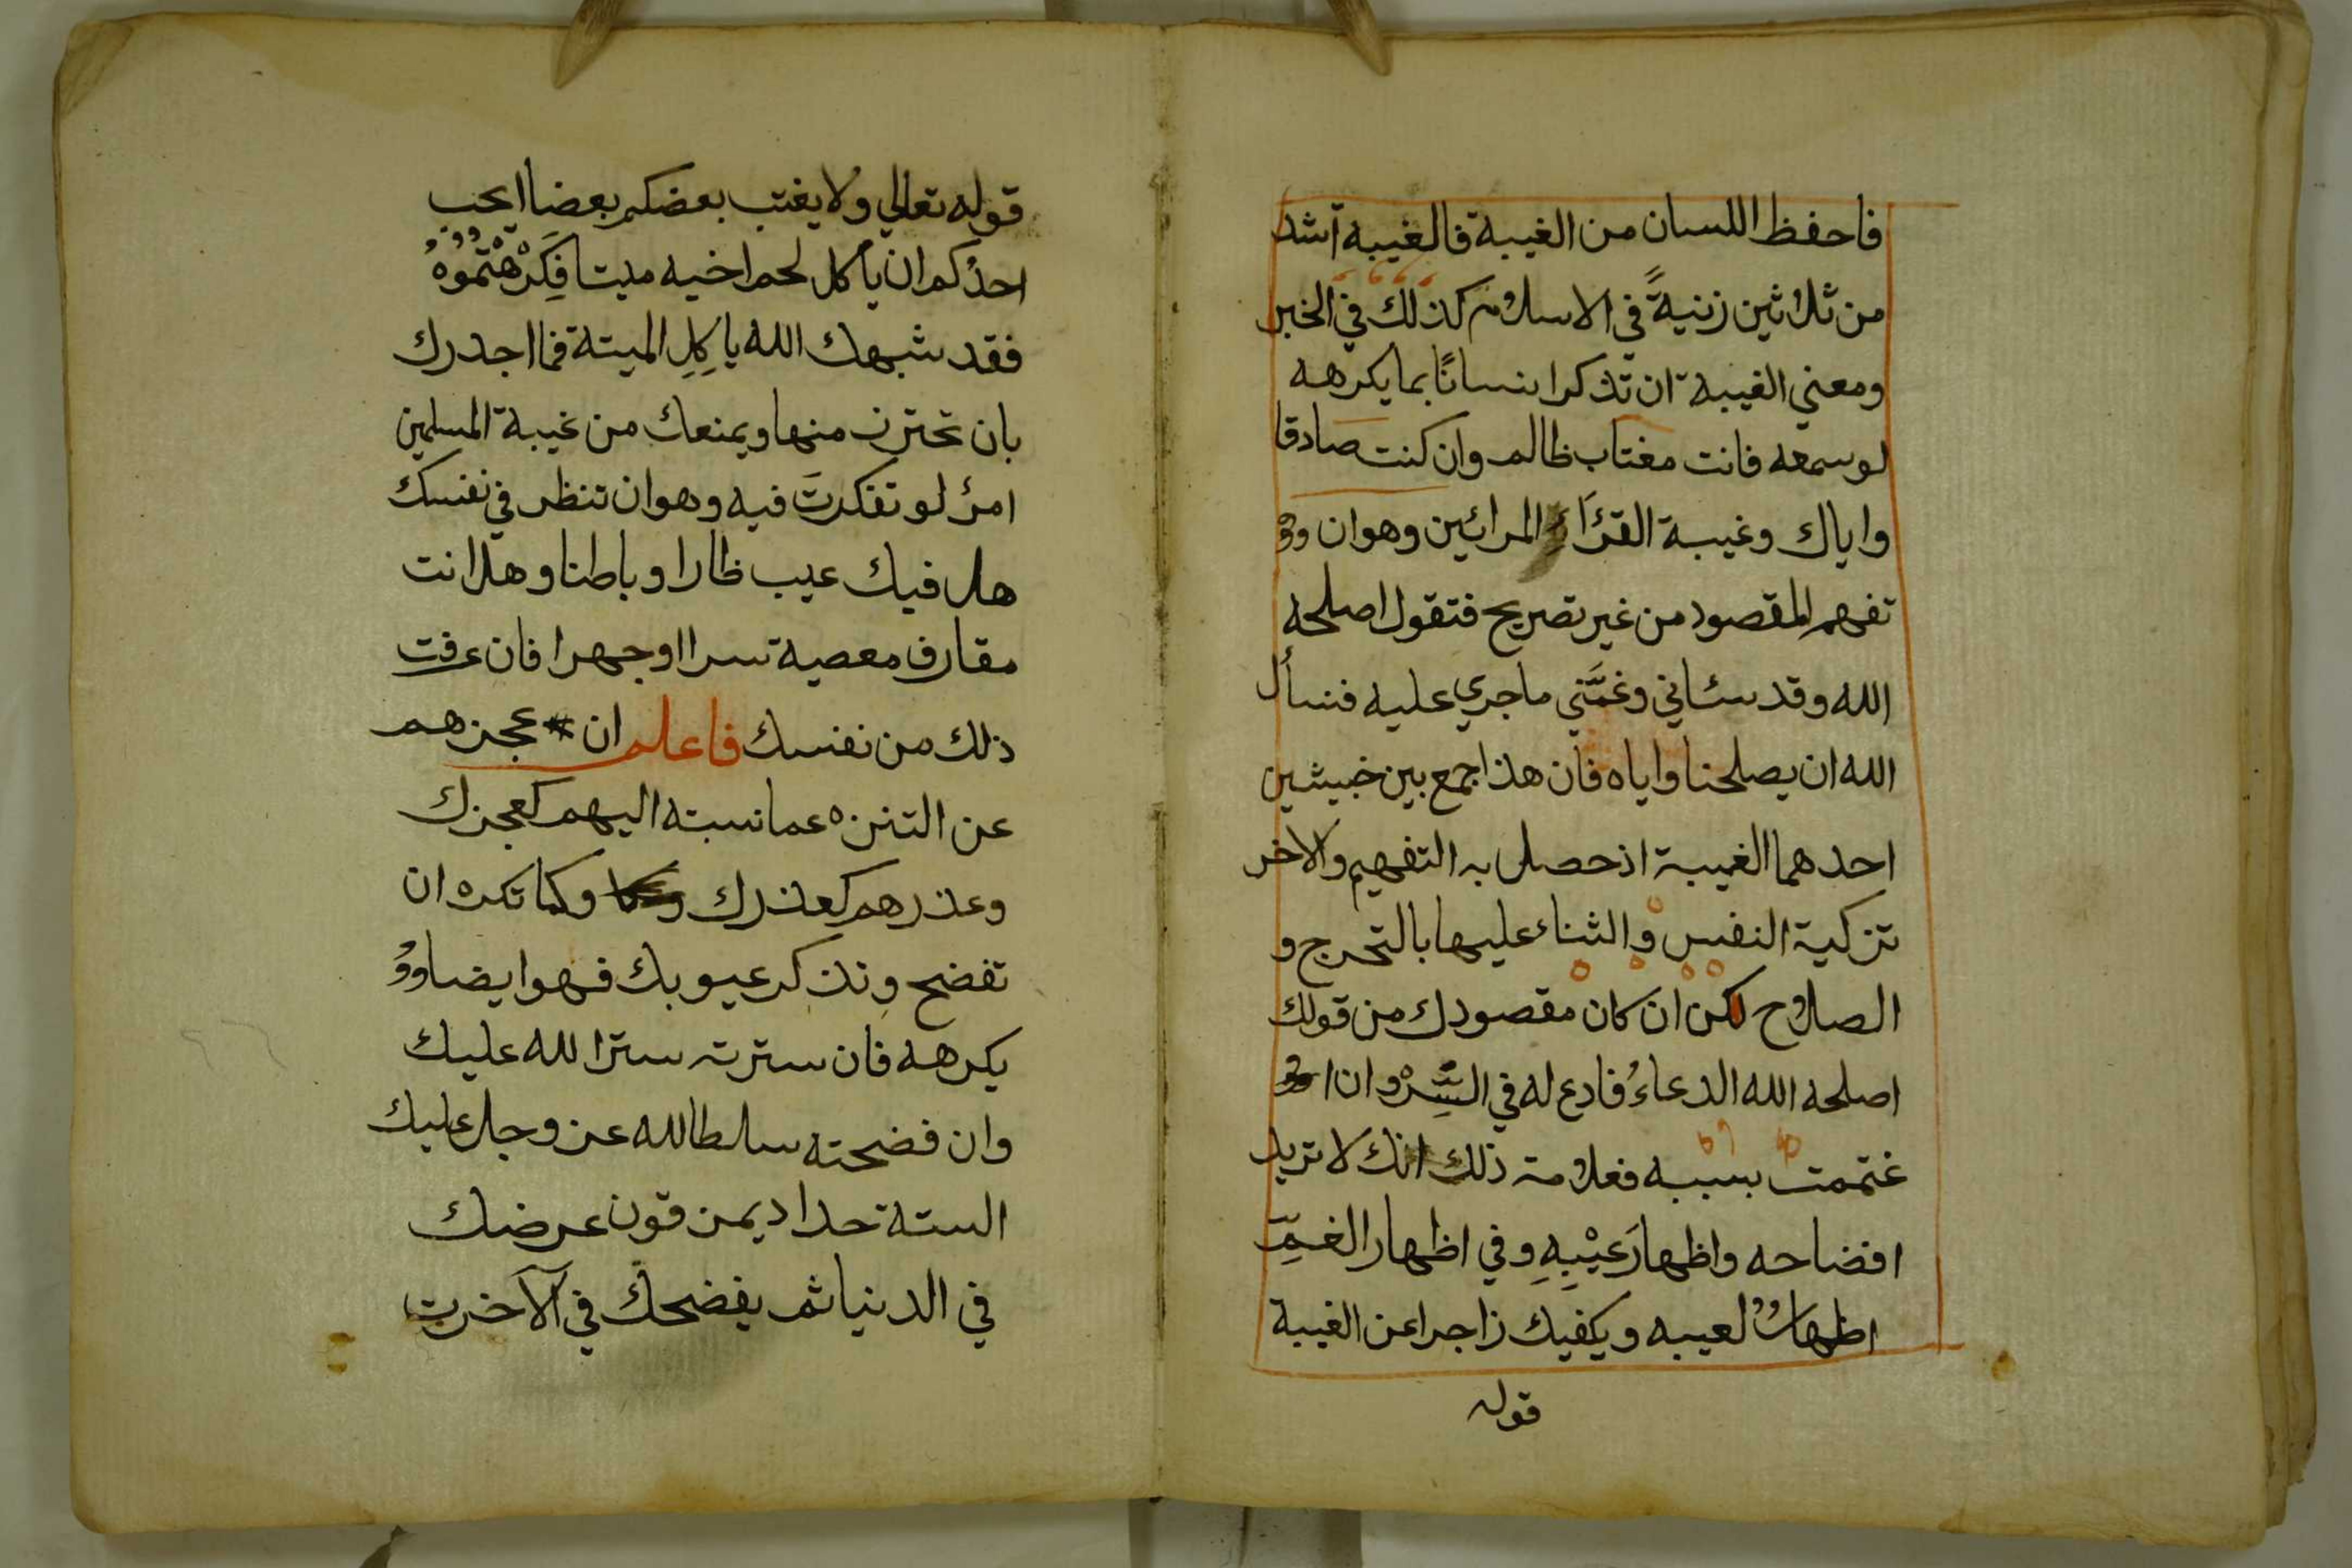 فاحفظ اللسان من الغيبة فالغيبة اشد
من ثلاثين زنيةً في الاسلام كذلك في الخبر
ومعني الغيبة ان تذكر انسانًا بما يكرهه
لوسمعه فانت مغتاب ظالم وان كنت صادقا
واياك وغيبة القرَّاء المرائين وهوان
تفهم المقصود من غير تصريح فتقول اصلحه
الله وقد سئاني وغمَّني ماجري عليه فنسأل
الله ان يصلحنا واياه فان هذا جمع بين خبيثين
احدهما الغيبة اذحصل به التفهيم والاخر
تزكية النفس والثناء عليها بالتحرج و
الصلاح لكن ان كان مقصودك من قولك
اصلحه الله الدعاءُ فادع له في السِّرْ وان ا
غتممت بسببه فعلامة ذلك انك لا تريد
افضاحه واظهارَ عَيْبِهِ وفي اظهار الغمِّ
اظهارٌ لعيبه ويكفيك زاجرا عن الغيبة
قوله
قوله تعالي ولا يغتب بعضكم بعضا ايحب
احدُكم ان يأكل لحم اخيه ميتا فكَرِهْتُمُوْهُ
فقد شبهك الله ياكِلِ الميتة فما اجدرك
بان تحترز منها ويمنعك من غيبة المسلمين
امرٌ لو تفكرتَ فيه وهوان تنظر في نفسك
هل فيك عيب ظارا وباطنا وهل انت
مقارف معصية سرا اوجهرا فان عرفت
ذلك من نفسك فاعلم ان عجزهم
عن التنزه عما نسبته اليهم كعجزك
وعذرهم كعذرك وكما تكره ان
تفضح وتذكر عيوبك فهوايضا
يكرهه فان سترته ستر الله عليك
وان فضحته سلط الله عز وجل عليك
السنة حدادا يمزقون عرضك
في الدنيا ثم يفضحك في الآخرت